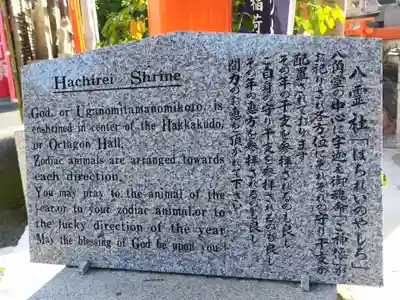 稲荷
Hachirei Shrine
God, or Uganomitamanomikoto, is
enshrined in center of the Hakkakudo,
or Octagon Hall.
Zodiac animals are arranged towards
each direction.
You may pray to the animal of the
year,or to your zodiac animal,or to
the lucky direction of the year
May the blessing of God be upon you
八霊社「はちれいのやしろ」
八角堂の中心に宇迦之御魂命のご神像が
お祀りされ各方位にそれぞれの守り干支が
配置されております
その年の干支を参拝されるのも良し
ご自身の守り干支を参拝されるのも良し
その年の恵方を参拝されるも良し
開力のお恵み頂いて下さい